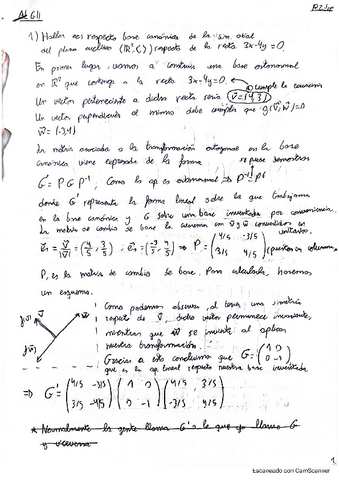 Al G II
1) Hallar ecs respecto base canónica de la sim. axial
del plano euclídeo (R², <,>) respecto de la recta 3x-4y=0.
En primer lugar, vamos a construir una base ortonormal
en R² que contenga a la recta 3x-4y=0. cumple la ecuación
Un vector perteneciente a dicha recta sería v=(4,3)
Un vector perpendicular al mismo debe cumplir que g(v,w)=0
w=(-3,4)
La matriz asociada a la transformación ortogonal en la base
canónica viene expresada de la forma se puede demostrar
G'=P G P⁻¹, Como la ap es ortonormal ⇒ P⁻¹=Pᵗ
donde G' representa la forma lineal sobre la que trabajamos
en la base canónica y G sobre una base inventada por conveniencia.
La matriz de cambio de base la creamos con v y w convertidos en
unitarios.
e₁ = v/|v| = (4/5, 3/5) ; e₂ = (-3/5, 4/5) ⇒ P = (4/5 -3/5
3/5 4/5) (puestos en columna)
P, es la matriz de cambio de base. Para calcularla, hacemos
un esquema.
Como podemos observar, al tener una simetría
respecto de v, dicho vector permanece invariante,
mientras que w se invierte al aplicar
nuestra transformación.
Gracias a esto concluimos que G=(1 0
0 -1)
que es la ap lineal respecto nuestra base inventada
⇒ G' = (4/5 -3/5 (1 0 (4/5 3/5
3/5 -4/5) 0 -1) -3/5 4/5)
* Normalmente la gente llama G' a lo que yo llamo G
y viceversa
1
Escaneado con CamScanner